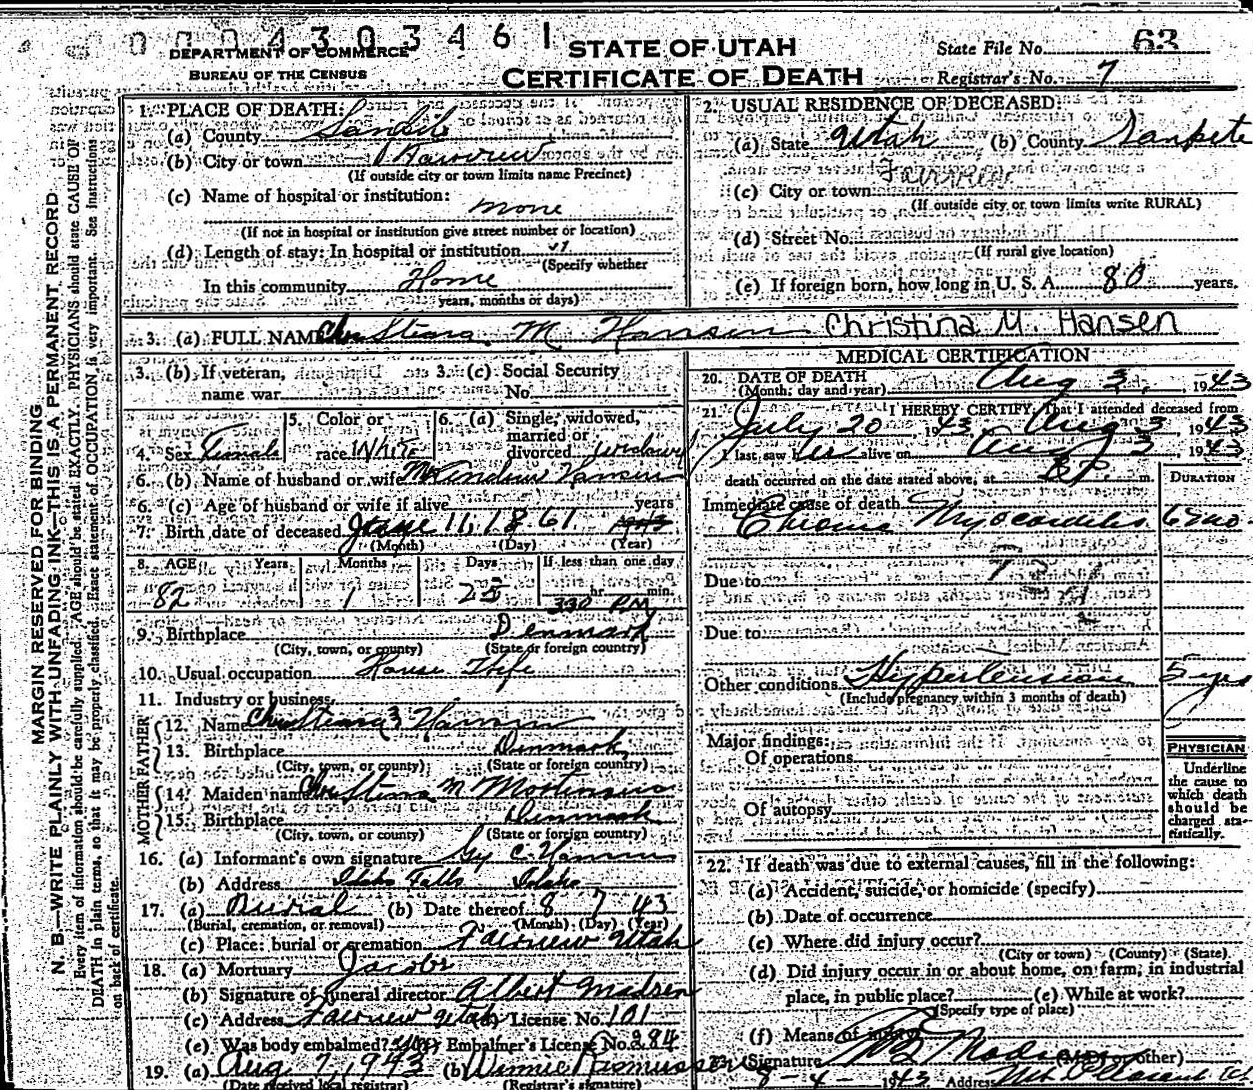 0004303461
DEPARTMENT OF COMMERCE
BUREAU OF THE CENSUS
STATE OF UTAH
CERTIFICATE OF DEATH
State File No. 63
Registrar's No. 7
MARGIN RESERVED FOR BINDING
N. B.—WRITE PLAINLY WITH UNFADING INK—THIS IS A PERMANENT RECORD
Every item of information should be carefully supplied. AGE should be stated EXACTLY. PHYSICIANS should state CAUSE OF
DEATH in plain terms, so that it may be properly classified. Exact statement of OCCUPATION is very important. See instructions
on back of certificate.
1. PLACE OF DEATH:
(a) County Sanpete
(b) City or town Fairview
(If outside city or town limits name Precinct)
(c) Name of hospital or institution:
none
(If not in hospital or institution give street number or location)
(d) Length of stay: In hospital or institution
(Specify whether
In this community Home
years, months or days)
2. USUAL RESIDENCE OF DECEASED:
(a) State Utah (b) County Sanpete
(c) City or town Fairview
(If outside city or town limits write RURAL)
(d) Street No.
(If rural give location)
(e) If foreign born, how long in U. S. A. 80 years.
3. (a) FULL NAME M Hansen Christina M. Hansen
3. (b) If veteran,
name war
3. (c) Social Security
No.
4. Sex Female
5. Color or
race White
6. (a) Single, widowed,
married or
divorced widow
6. (b) Name of husband or wife Andrew Hansen
6. (c) Age of husband or wife if alive years
7. Birth date of deceased June 11, 1861
(Month) (Day) (Year)
8. AGE Years Months Days If less than one day
82 1 25 hr. min.
330 PM
9. Birthplace Denmark
(City, town, or county) (State or foreign country)
10. Usual occupation House Wife
11. Industry or business
FATHER
12. Name Hansen
13. Birthplace Denmark
(City, town, or county) (State or foreign country)
MOTHER
14. Maiden name M Mortensen
15. Birthplace Denmark
(City, town, or county) (State or foreign country)
16. (a) Informant's own signature Gy C. Hansen
(b) Address Idaho Falls Idaho
17. (a) Burial (b) Date thereof 8 7 43
(Burial, cremation, or removal) (Month) (Day) (Year)
(c) Place: burial or cremation Fairview Utah
18. (a) Mortuary Jacobs
(b) Signature of funeral director Albert Madsen
(c) Address Fairview Utah (d) License No. 101
(e) Was body embalmed? Embalmer's License No. 284
19. (a) Aug 7, 1943 (b) Winnie Rasmussen
(Date received local registrar) (Registrar's signature)
MEDICAL CERTIFICATION
20. DATE OF DEATH
(Month, day and year) Aug 3, 1943
21. I HEREBY CERTIFY: That I attended deceased from
July 20, 1943, Aug 3, 1943
I last saw her alive on Aug 3 1943
death occurred on the date stated above, at m.
DURATION
Immediate cause of death
Chronic Myocarditis 6 mo
Due to
Due to
Other conditions Hypertension 5 yrs
(Include pregnancy within 3 months of death)
Major findings:
Of operations
Of autopsy
PHYSICIAN
Underline
the cause to
which death
should be
charged sta-
tistically.
22. If death was due to external causes, fill in the following:
(a) Accident, suicide, or homicide (specify)
(b) Date of occurrence
(c) Where did injury occur?
(City or town) (County) (State)
(d) Did injury occur in or about home, on farm, in industrial
place, in public place? (e) While at work?
(Specify type of place)
(f) Means of injury
23. (Signature) Madsen (M. D. or other)
8-4-1943 Address Mt Pleasant